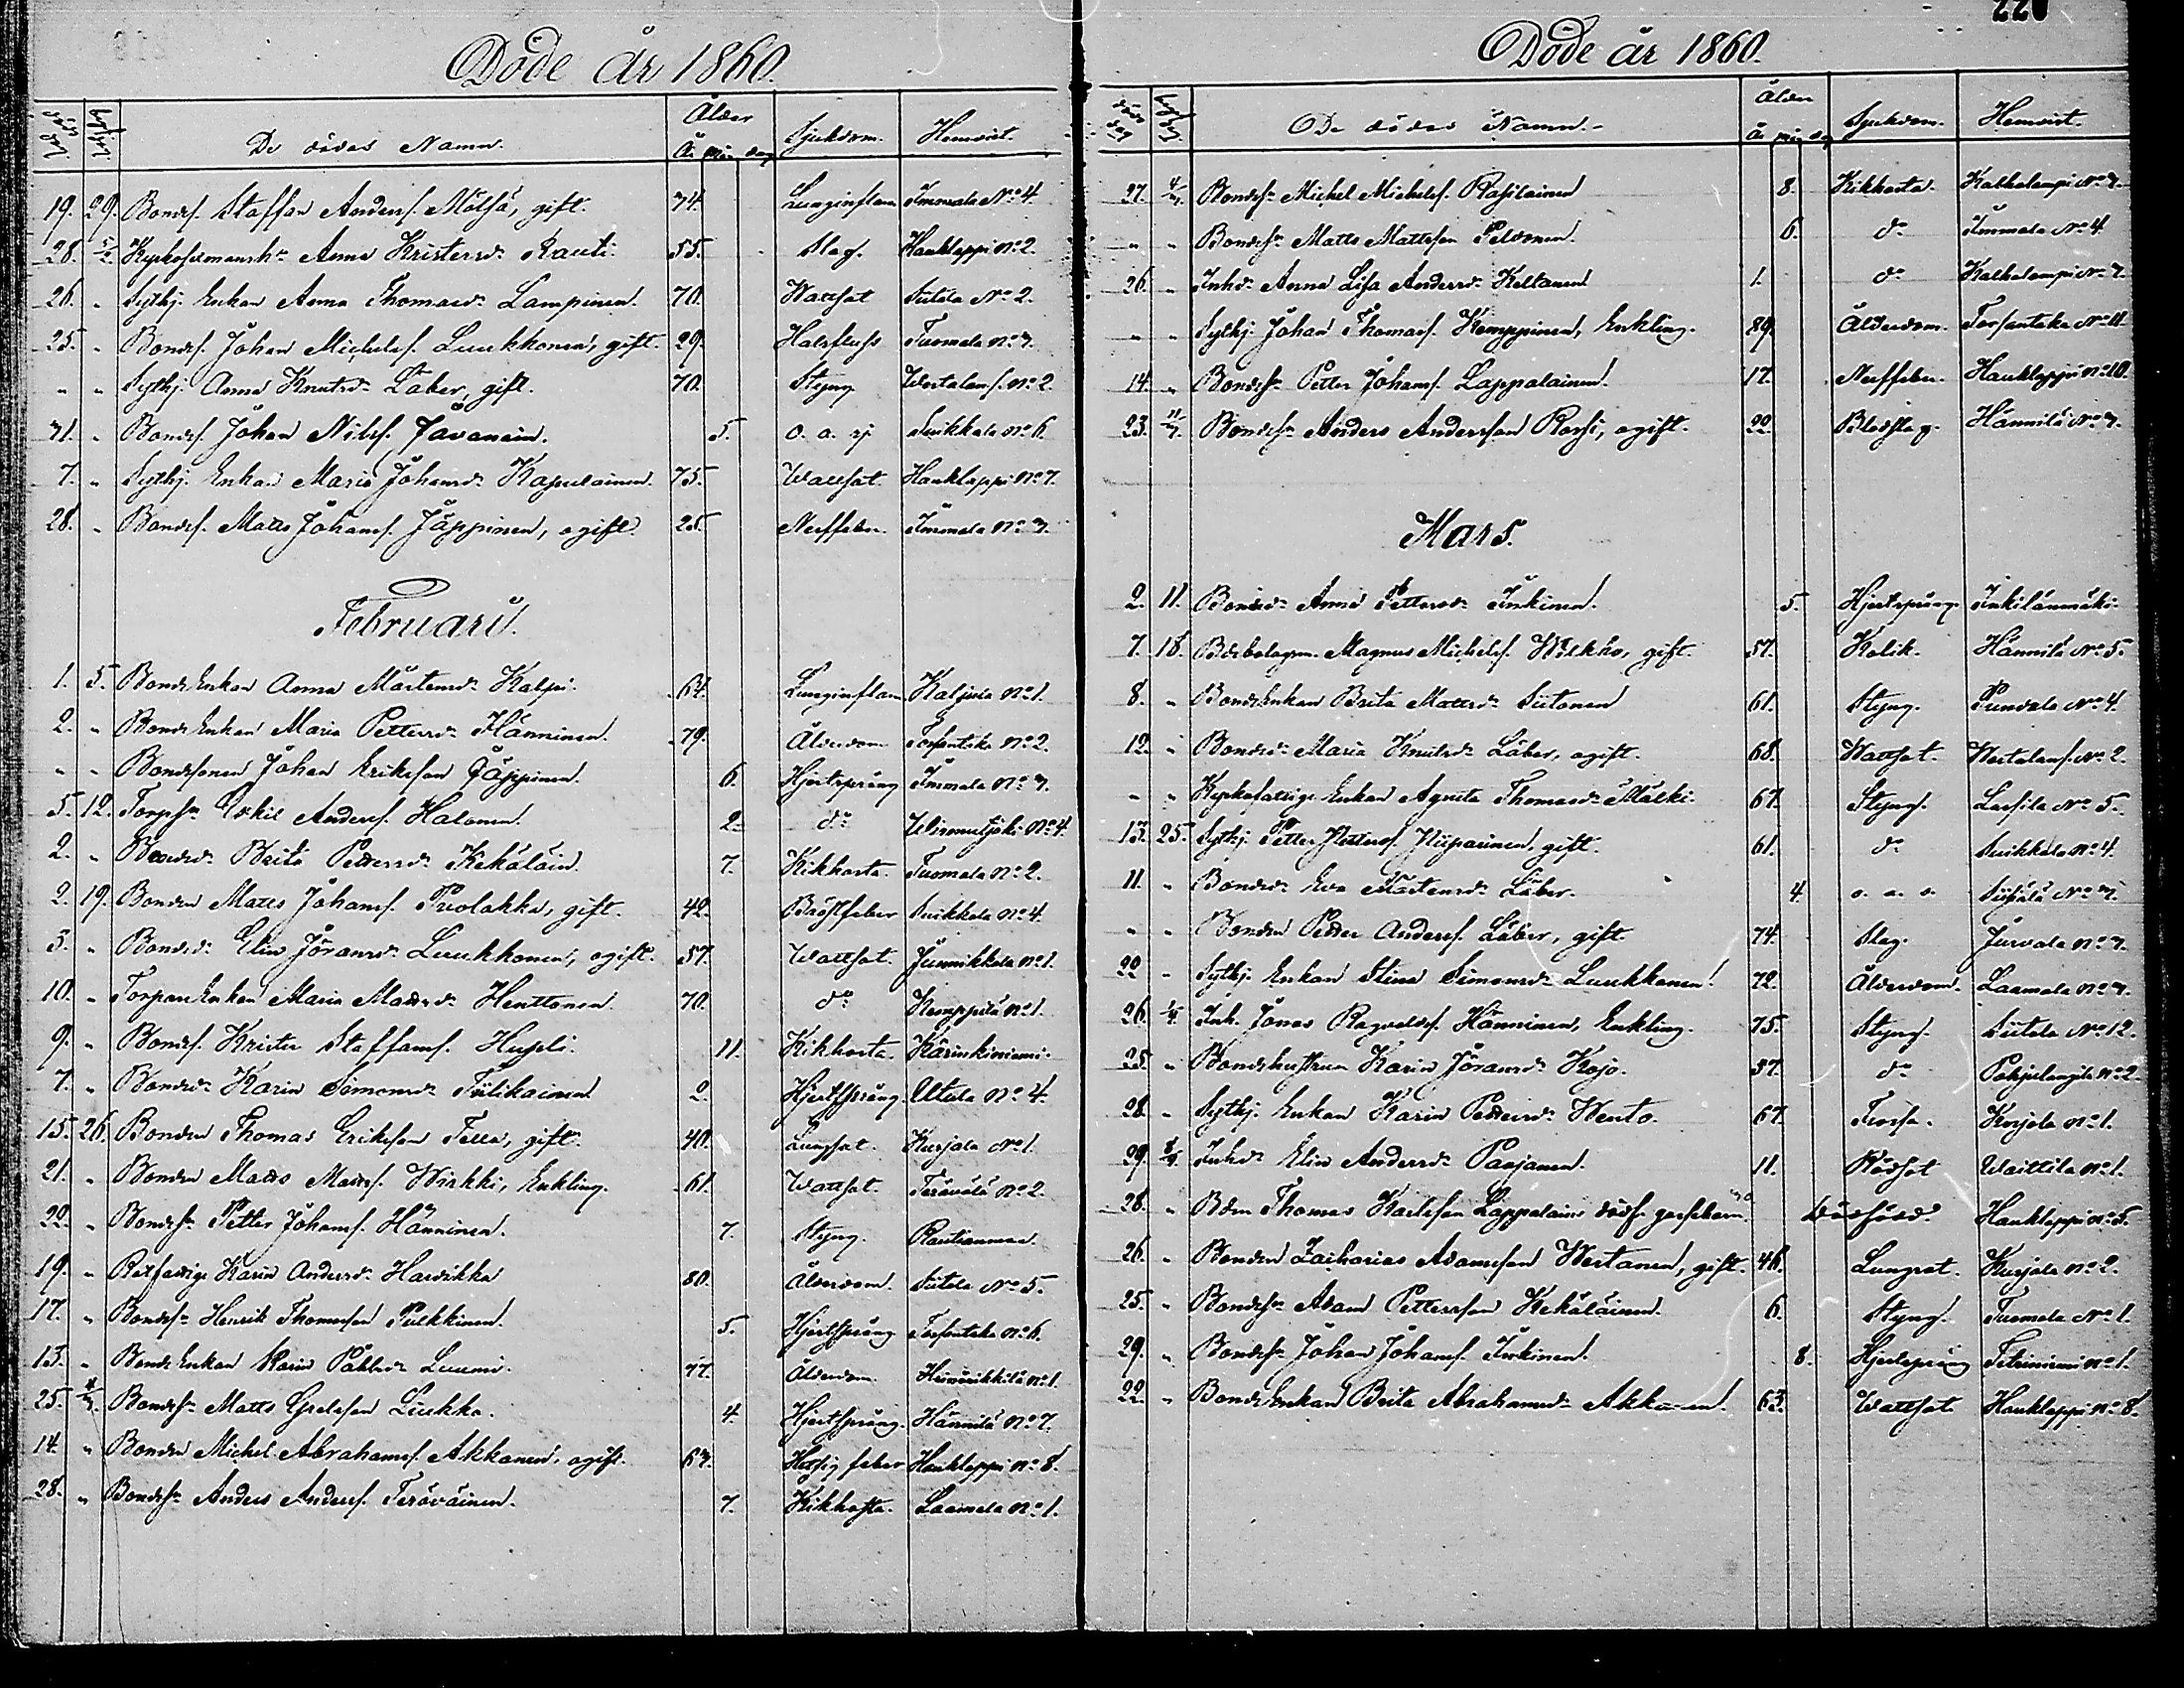 Döde år 1860.
döds dag
begr. dag
De dödas Namn.
Ålder
År mån dag
Sjukdom.
Hemvist.
19. 29. Bondes. Staffan Anderss. Mölsä, gift. 74. Lunginflam Immala No 4.
28. 5/2. Anna Kristersdr Rauti. 55. Slag. Hauklappi No 2.
26. " Sythj. Enkan Anna Thomasdr Lampinen. 70. Wattsot Siitola No 2.
25. " Bondes. Johan Michelss. Luukkonen, gift. 29. Halsfluss Tuomala No 3.
" " Sythj. Anna Knutsdr Läber, gift. 70. Styng No 2.
31. " Bondes. Johan Nilss. Javanain. 5. o. a. sj Suikkala No 6.
7. " Sythj. Enkan Maria Johansdr Kapulainen. 75. Wattsot. Hauklappi No 7.
28. " Bondes. Matts Johanss. Jäppinen, ogift. 25. Nerffeber. Immala No 3.
Februari.
1. 5. Bonde Enkan Anna Mårtensdr Kalpi. 64. Lunginflam. Kaljuia No 1.
2. " Bonde Enkan Maria Pettersdr Hänninen. 79. Ålderdom Torsantaka No 2.
" " Bondesonen Johan Erikson Jäppinen. 6. Hjertsprång Immala No 3.
5. 12. Torpsn Eskil Anderss. Halonen. 2. do No 4.
2. " Bondedr Brita Pettersdr Kekäläin. 7. Kikhosta. Tuomala No 2.
2. 19. Bonden Matts Johanss. Puolakka, gift. 42. Bröstfeber Suikkala No 4.
3. " Bondedr Elin Jöransdr Luukkonen, ogift. 57. Wattsot. Junnikkala No 1.
10. " Torpare Enkan Maria Mattsdr Henttonen. 70. do Kemppilä No 1.
9. " Bondes. Krister Staffanss. Hupli. 11. Kikhosta. Kärinkiniemi.
7. " Bondedr Karin Simonsdr Tiilikainen 2. Hjertsprång. Utula No 4.
15. 26. Bonden Thomas Erikson Tella, gift. 40. Lungsot. Kurjala No 1.
21. " Bonden Matts Mattss. Wirkki, Enkling. 61. Wattsot. Terävälä No 2.
22. " Bondesn Petter Johanss. Hänninen. 7. Styng. Rautianmaa.
19. " Karin Andersdr Harvikka 80. Ålderdom. Siitola No 5.
17. " Bondesn Henrik Thomasson Pulkkinen. 5. Hjertsprång Torsantaka No 6.
13. " Bonde Enkan Karin Påhlsdr Luumi. 77. Ålderdom. No 1.
25. 4/3. Bondesn Matts Liukko. 4. Hjertsprång. Hännilä No 7.
14. " Bonden Michel Abrahamss. Akkanen, ogift. 63. Hetsig feber Hauklappi No 8.
28. " Bondesn Anders Anderss. Teräväinen. 7. Kikhosta. Laamala No 1.
220
Döde år 1860.
döds dag
begr. dag
De dödas Namn.
Ålder
År mån dag
Sjukdom.
Hemvist.
27. 4/3. Bondesn Michel Michelss. Rasilainen 8. Kikhosta. Kalkolampi No 3.
" " Bondesn Matts Mattsson Peldonen. 6. do Immala No 4
26. " Inhdr Anna Lisa Andersdr Keltanen 1. do Kalkolampi No 3.
" " Sythj. Johan Thomass. Kemppinen, Enkling. 89. Ålderdom. Torsantaka No 11.
14. " Bondesn Petter Johanss. Lappalainen. 17. Nerffeber. Hauklappi No 10.
23. 11/3. Bondesn Anders Andersson Rossi, ogift. 22. Blodslag. Hännilä No 3.
Mars.
2. 11. Bondedr Anna Pettersdr Inkinen. 5. Hjertsprång. Inkilänmäki.
7. 18. Bdebolagsm. Magnus Michelss. Wilkko, gift. 57. Kolik. Hännilä No 5.
8. " Bonde Enkan Brita Mattsdr Siitonen 61. Styng. Pundala No 4.
12. " Bondedr Maria Knutsdr Läber, ogift. 68. Wattsot. No 2.
" " Kyrkofattige Enkan Agneta Thomasdr Mälki. 67. Styng. Lassila No 5.
13. 25. Sythj. Petter Piiparinen, gift. 61. do Suikkala No 4.
11. " Bondedr Eva Mårtensdr Läber. 4. o. a. s. Siisiälä No 3.
" " Bonden Petter Anderss. Läber, gift. 74. Slag. Jurvala No 3.
22 " Sythj. Enkan Stina Simonsdr Luukkonen. 72. Ålderdom. Laamala No 3.
26. 1/4. Inh. Jonas Ragvaldss. Hänninen, Enkling. 75. Styng. Siitola No 12.
25. " Bondehustrun Karin Jöransdr Kojo. 37. do Pohjalampila No 2.
28. " Sythj. Enkan Karin Pettersdr Wento. 67. Trossa. Korjola No 1.
29. 8/4. Inhdr Elin Andersdr Paajanen. 11. Rödsot Waittila No 1.
28. " Bden Thomas Karlsson Lappalains dödf. gossebarn. dödfödd. Hauklappi No 5.
26. " Bonden Zacharias Adamsson Wertanen, gift. 46. Lungsot. Kurjala No 2.
25. " Bondesn Adam Pettersson Kekäläinen. 6. Styng. Tuomala No 1.
29. " Bondesn Johan Johanss. Inkinen. 8. Hjertsprång No 1.
22. " Bonde Enkan Brita Abrahamsdr Akkanen. 63. Wattsot Hauklappi No 8.